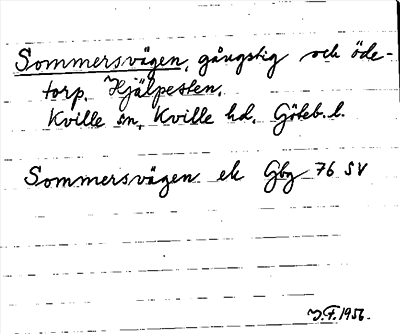 Sommersvägen, gångstig och öde-
torp. Hjälpesten.
Kville sn, Kville hd. Göteb. l.
Sommersvägen ek Gbg 76 SV
J.F. 1956.